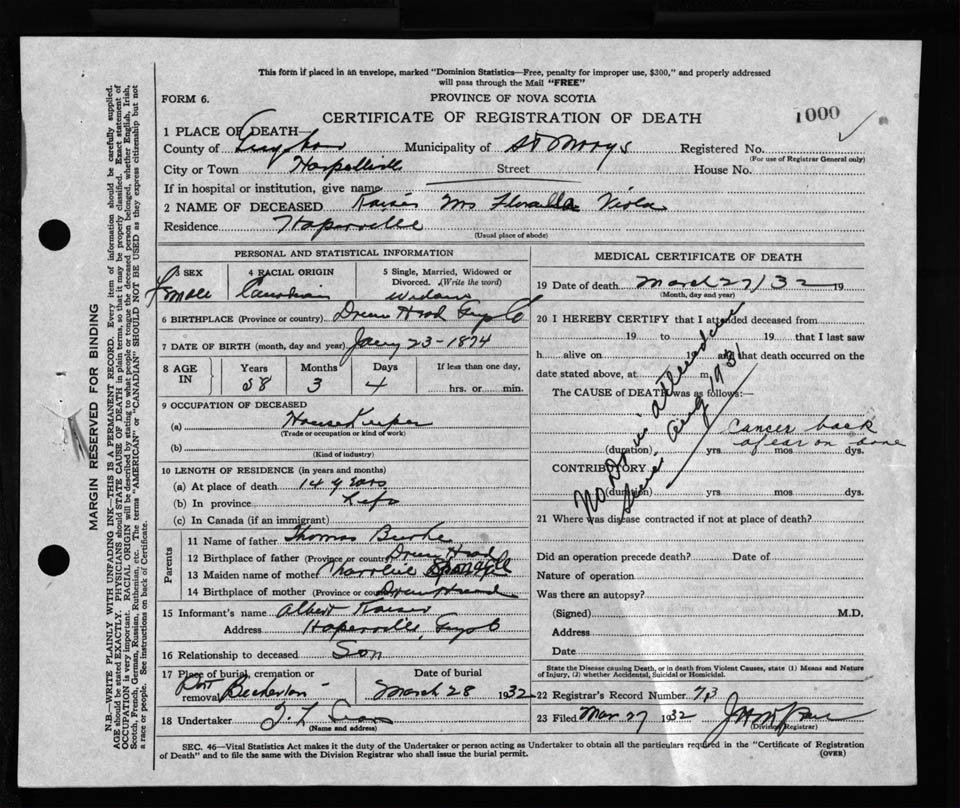 This form if placed in an envelope, marked "Dominion Statistics—Free, penalty for improper use, $300," and properly addressed
will pass through the Mail "FREE"
FORM 6.
PROVINCE OF NOVA SCOTIA
CERTIFICATE OF REGISTRATION OF DEATH
1000
1 PLACE OF DEATH—
County of Municipality of St Marys Registered No.
(For use of Registrar General only)
City or Town Street House No.
If in hospital or institution, give name
2 NAME OF DECEASED Kaiser Mrs Viola
Residence
(Usual place of abode)
PERSONAL AND STATISTICAL INFORMATION
3 SEX
4 RACIAL ORIGIN Canadian
5 Single, Married, Widowed or
Divorced. (Write the word)
6 BIRTHPLACE (Province or country)
7 DATE OF BIRTH (month, day and year) 23-1874
8 AGE IN
Years 58
Months 3
Days 4
If less than one day,
hrs. or min.
9 OCCUPATION OF DECEASED
(a) House Keeper
(Trade or occupation or kind of work)
(b)
(Kind of industry)
10 LENGTH OF RESIDENCE (in years and months)
(a) At place of death 14 years
(b) In province Life
(c) In Canada (if an immigrant)
Parents
11 Name of father Thomas Burke
12 Birthplace of father (Province or country)
13 Maiden name of mother
14 Birthplace of mother (Province or country)
15 Informant's name Albert Kaiser
Address
16 Relationship to deceased Son
17 Place of burial, cremation or
removal Port
Date of burial
March 28 1932
18 Undertaker
(Name and address)
MEDICAL CERTIFICATE OF DEATH
19 Date of death March 27/32 19
(Month, day and year)
20 I HEREBY CERTIFY that I attended deceased from
19 to 19 that I last saw
h alive on and that death occurred on the
date stated above, at m.
The CAUSE of DEATH was as follows:—
Cancer back
(duration) yrs mos dys.
CONTRIBUTORY
(duration) yrs mos dys.
No attendance
Aug 1931
21 Where was disease contracted if not at place of death?
Did an operation precede death? Date of
Nature of operation
Was there an autopsy?
(Signed) M.D.
Address
Date
State the Disease causing Death, or in death from Violent Causes, state (1) Means and Nature
of Injury, (2) whether Accidental, Suicidal or Homicidal.
22 Registrar's Record Number
23 Filed Mar 27 1932
(Division Registrar)
SEC. 46—Vital Statistics Act makes it the duty of the Undertaker or person acting as Undertaker to obtain all the particulars required in the "Certificate of Registration
of Death" and to file the same with the Division Registrar who shall issue the burial permit.
(OVER)
MARGIN RESERVED FOR BINDING
N.B.—WRITE PLAINLY WITH UNFADING INK—THIS IS A PERMANENT RECORD. Every item of information should be carefully supplied.
AGE should be stated EXACTLY. PHYSICIANS should STATE CAUSE OF DEATH in plain terms, so that it may be properly classified. Exact statement of
OCCUPATION is very important. RACIAL ORIGIN will be described by stating to what people or tongue the deceased person belonged, whether English, Irish,
Scotch, French, German, Russian, Ruthenian, etc. The terms "AMERICAN" or "CANADIAN" SHOULD NOT BE USED as they express citizenship but not
a race or people. See instructions on back of Certificate.